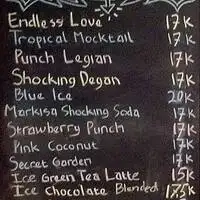 Endless Love 17K
Tropical Mocktail 17K
Punch Legian 17K
Shocking Degan 17K
Blue Ice 20K
Markisa Shocking Soda 17K
Strawberry Punch 17K
Pink Coconut 17K
Secret Garden 17K
Ice Green Tea Latte 15K
Ice Chocolate Blended 17.5K